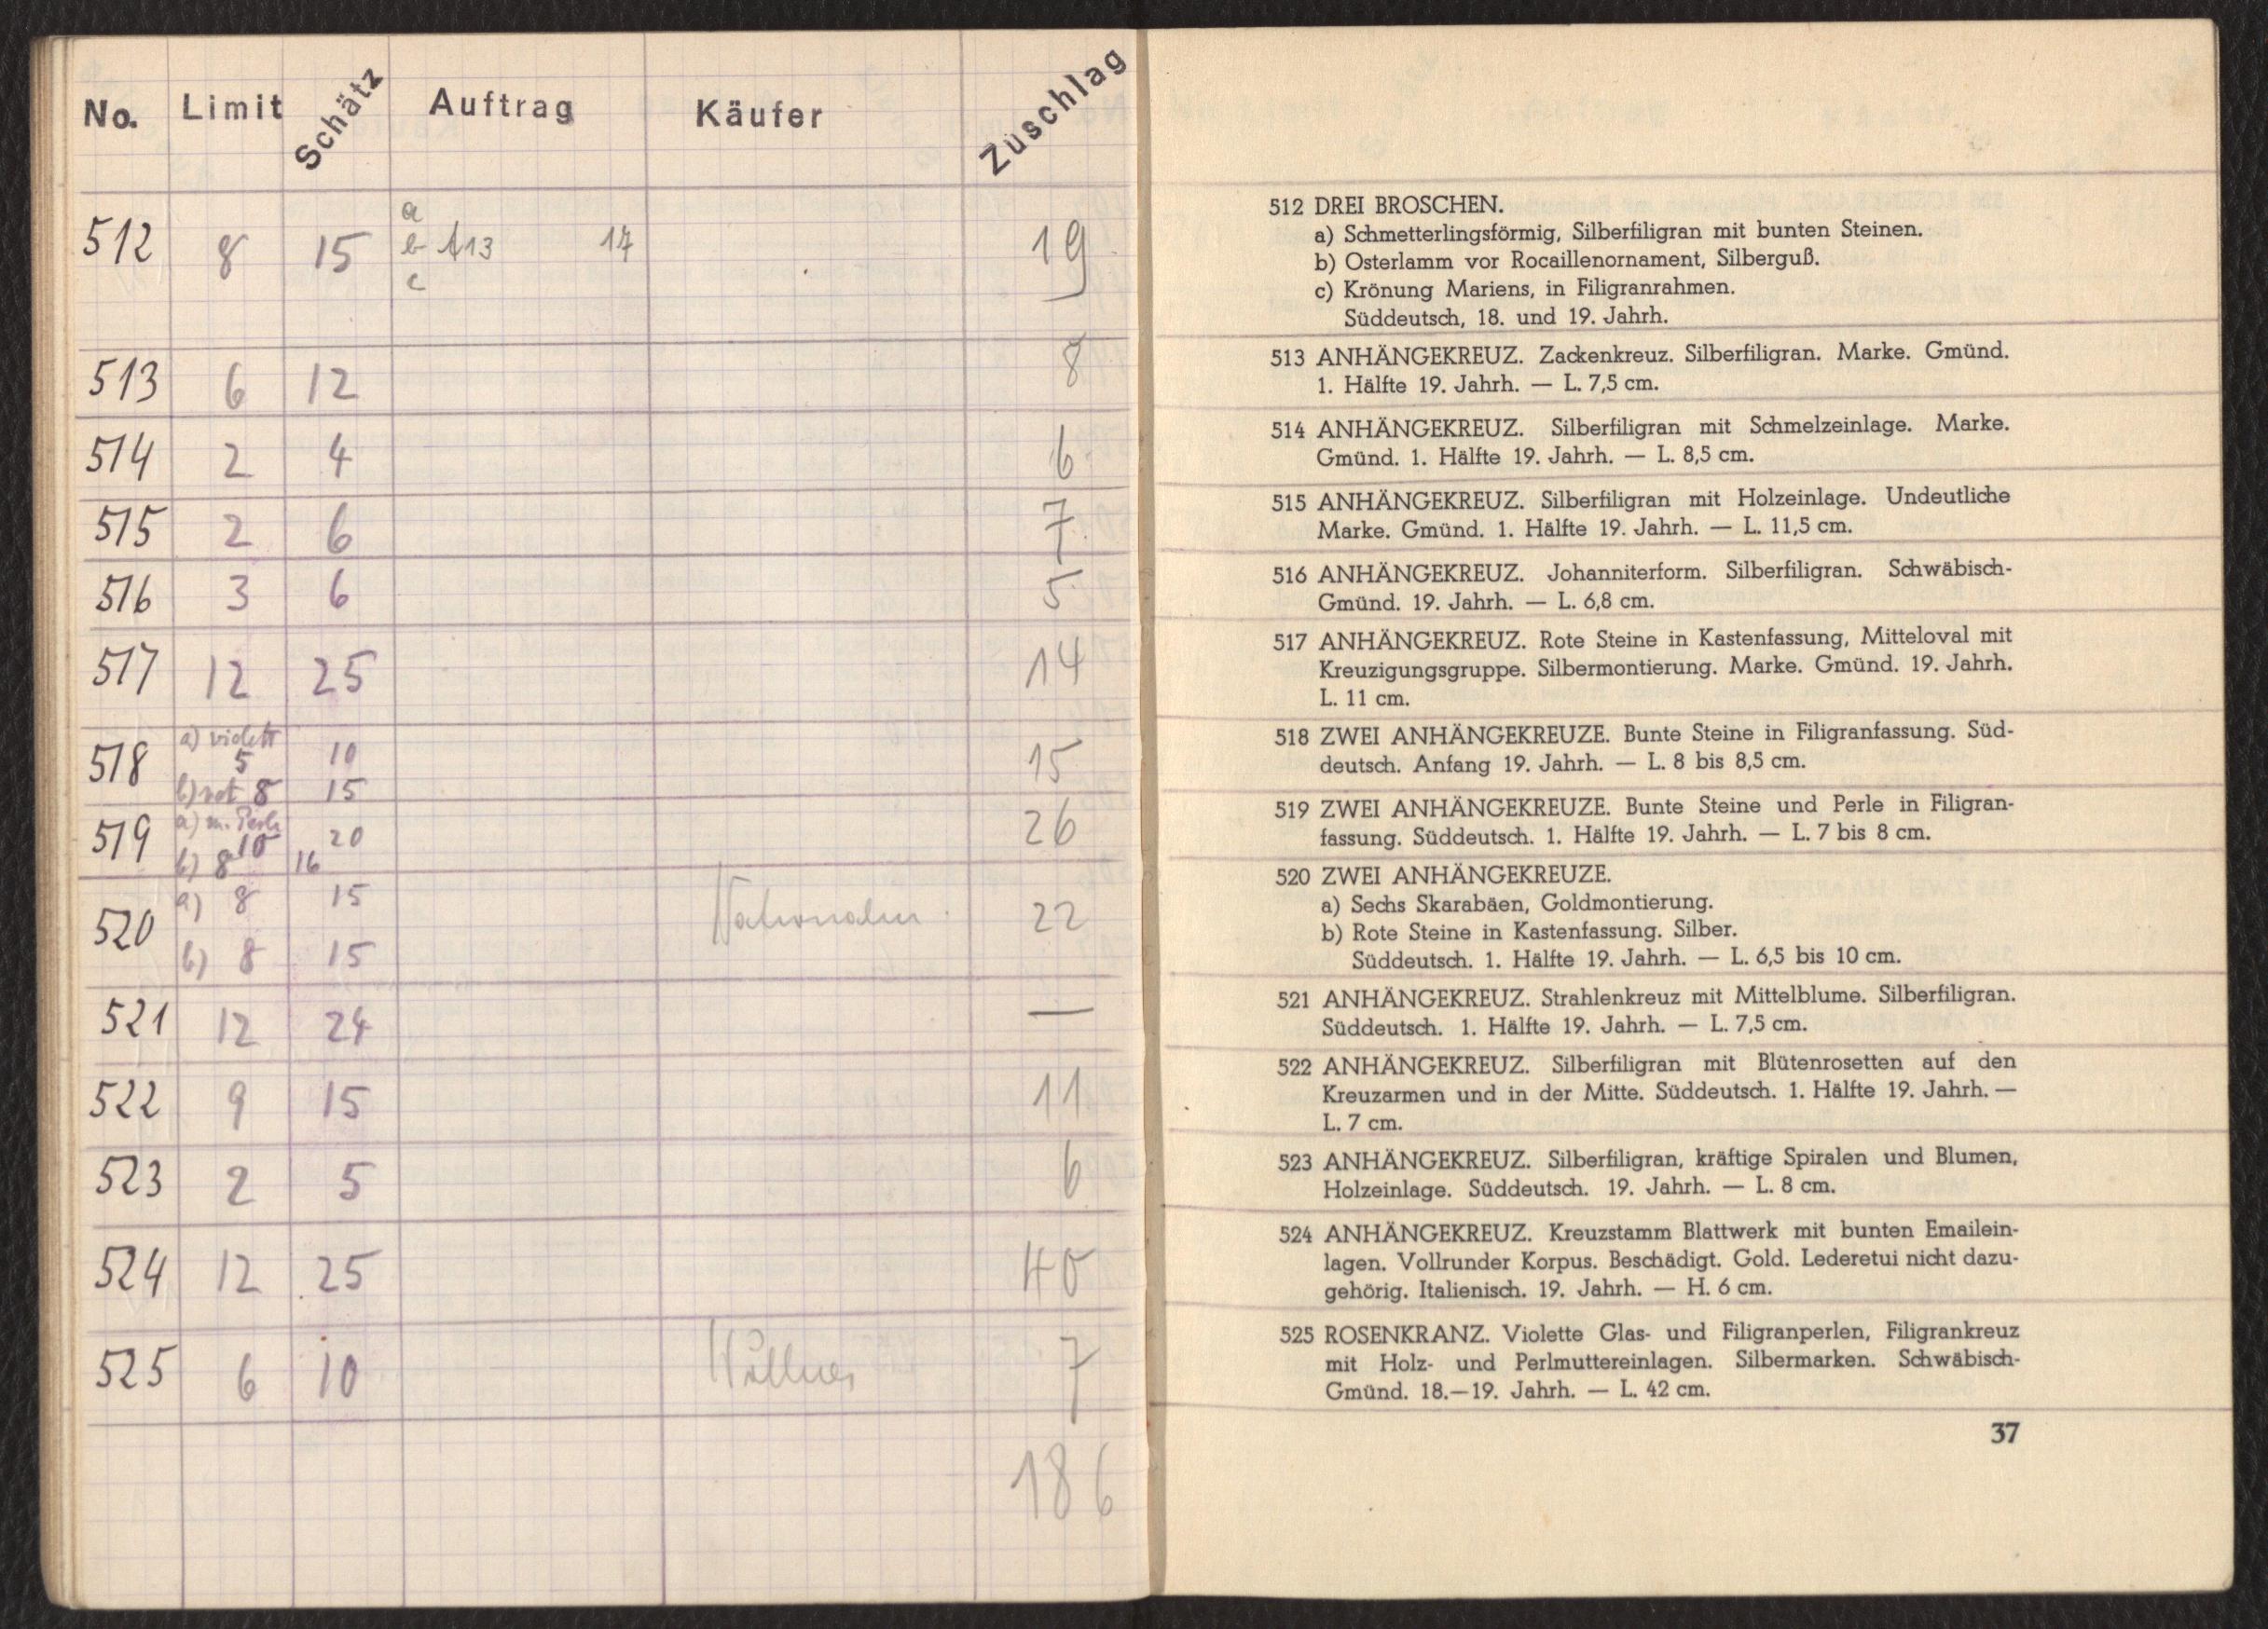 No. Limit Schätz Auftrag Käufer Zuschlag
a
512 8 15 b 13 17 19
c
513 6 12 8
514 2 4 6
515 2 6 7
516 3 6 5
517 12 25 14
a) violett
518 5 10 15
b) rot 8 15
a) m. Perle
519 10 20 26
b) 8 16
a) 8 15
520 22
b) 8 15
521 12 24 —
522 9 15 11
523 2 5 6
524 12 25 40
525 6 10 7
186
512 DREI BROSCHEN.
a) Schmetterlingsförmig, Silberfiligran mit bunten Steinen.
b) Osterlamm vor Rocaillenornament, Silberguß.
c) Krönung Mariens, in Filigranrahmen.
Süddeutsch, 18. und 19. Jahrh.
513 ANHÄNGEKREUZ. Zackenkreuz. Silberfiligran. Marke. Gmünd.
1. Hälfte 19. Jahrh. — L. 7,5 cm.
514 ANHÄNGEKREUZ. Silberfiligran mit Schmelzeinlage. Marke.
Gmünd. 1. Hälfte 19. Jahrh. — L. 8,5 cm.
515 ANHÄNGEKREUZ. Silberfiligran mit Holzeinlage. Undeutliche
Marke. Gmünd. 1. Hälfte 19. Jahrh. — L. 11,5 cm.
516 ANHÄNGEKREUZ. Johanniterform. Silberfiligran. Schwäbisch-
Gmünd. 19. Jahrh. — L. 6,8 cm.
517 ANHÄNGEKREUZ. Rote Steine in Kastenfassung, Mitteloval mit
Kreuzigungsgruppe. Silbermontierung. Marke. Gmünd. 19. Jahrh.
L. 11 cm.
518 ZWEI ANHÄNGEKREUZE. Bunte Steine in Filigranfassung. Süd-
deutsch. Anfang 19. Jahrh. — L. 8 bis 8,5 cm.
519 ZWEI ANHÄNGEKREUZE. Bunte Steine und Perle in Filigran-
fassung. Süddeutsch. 1. Hälfte 19. Jahrh. — L. 7 bis 8 cm.
520 ZWEI ANHÄNGEKREUZE.
a) Sechs Skarabäen, Goldmontierung.
b) Rote Steine in Kastenfassung. Silber.
Süddeutsch. 1. Hälfte 19. Jahrh. — L. 6,5 bis 10 cm.
521 ANHÄNGEKREUZ. Strahlenkreuz mit Mittelblume. Silberfiligran.
Süddeutsch. 1. Hälfte 19. Jahrh. — L. 7,5 cm.
522 ANHÄNGEKREUZ. Silberfiligran mit Blütenrosetten auf den
Kreuzarmen und in der Mitte. Süddeutsch. 1. Hälfte 19. Jahrh. —
L. 7 cm.
523 ANHÄNGEKREUZ. Silberfiligran, kräftige Spiralen und Blumen,
Holzeinlage. Süddeutsch. 19. Jahrh. — L. 8 cm.
524 ANHÄNGEKREUZ. Kreuzstamm Blattwerk mit bunten Emailein-
lagen. Vollrunder Korpus. Beschädigt. Gold. Lederetui nicht dazu-
gehörig. Italienisch. 19. Jahrh. — H. 6 cm.
525 ROSENKRANZ. Violette Glas- und Filigranperlen, Filigrankreuz
mit Holz- und Perlmuttereinlagen. Silbermarken. Schwäbisch-
Gmünd. 18.—19. Jahrh. — L. 42 cm.
37